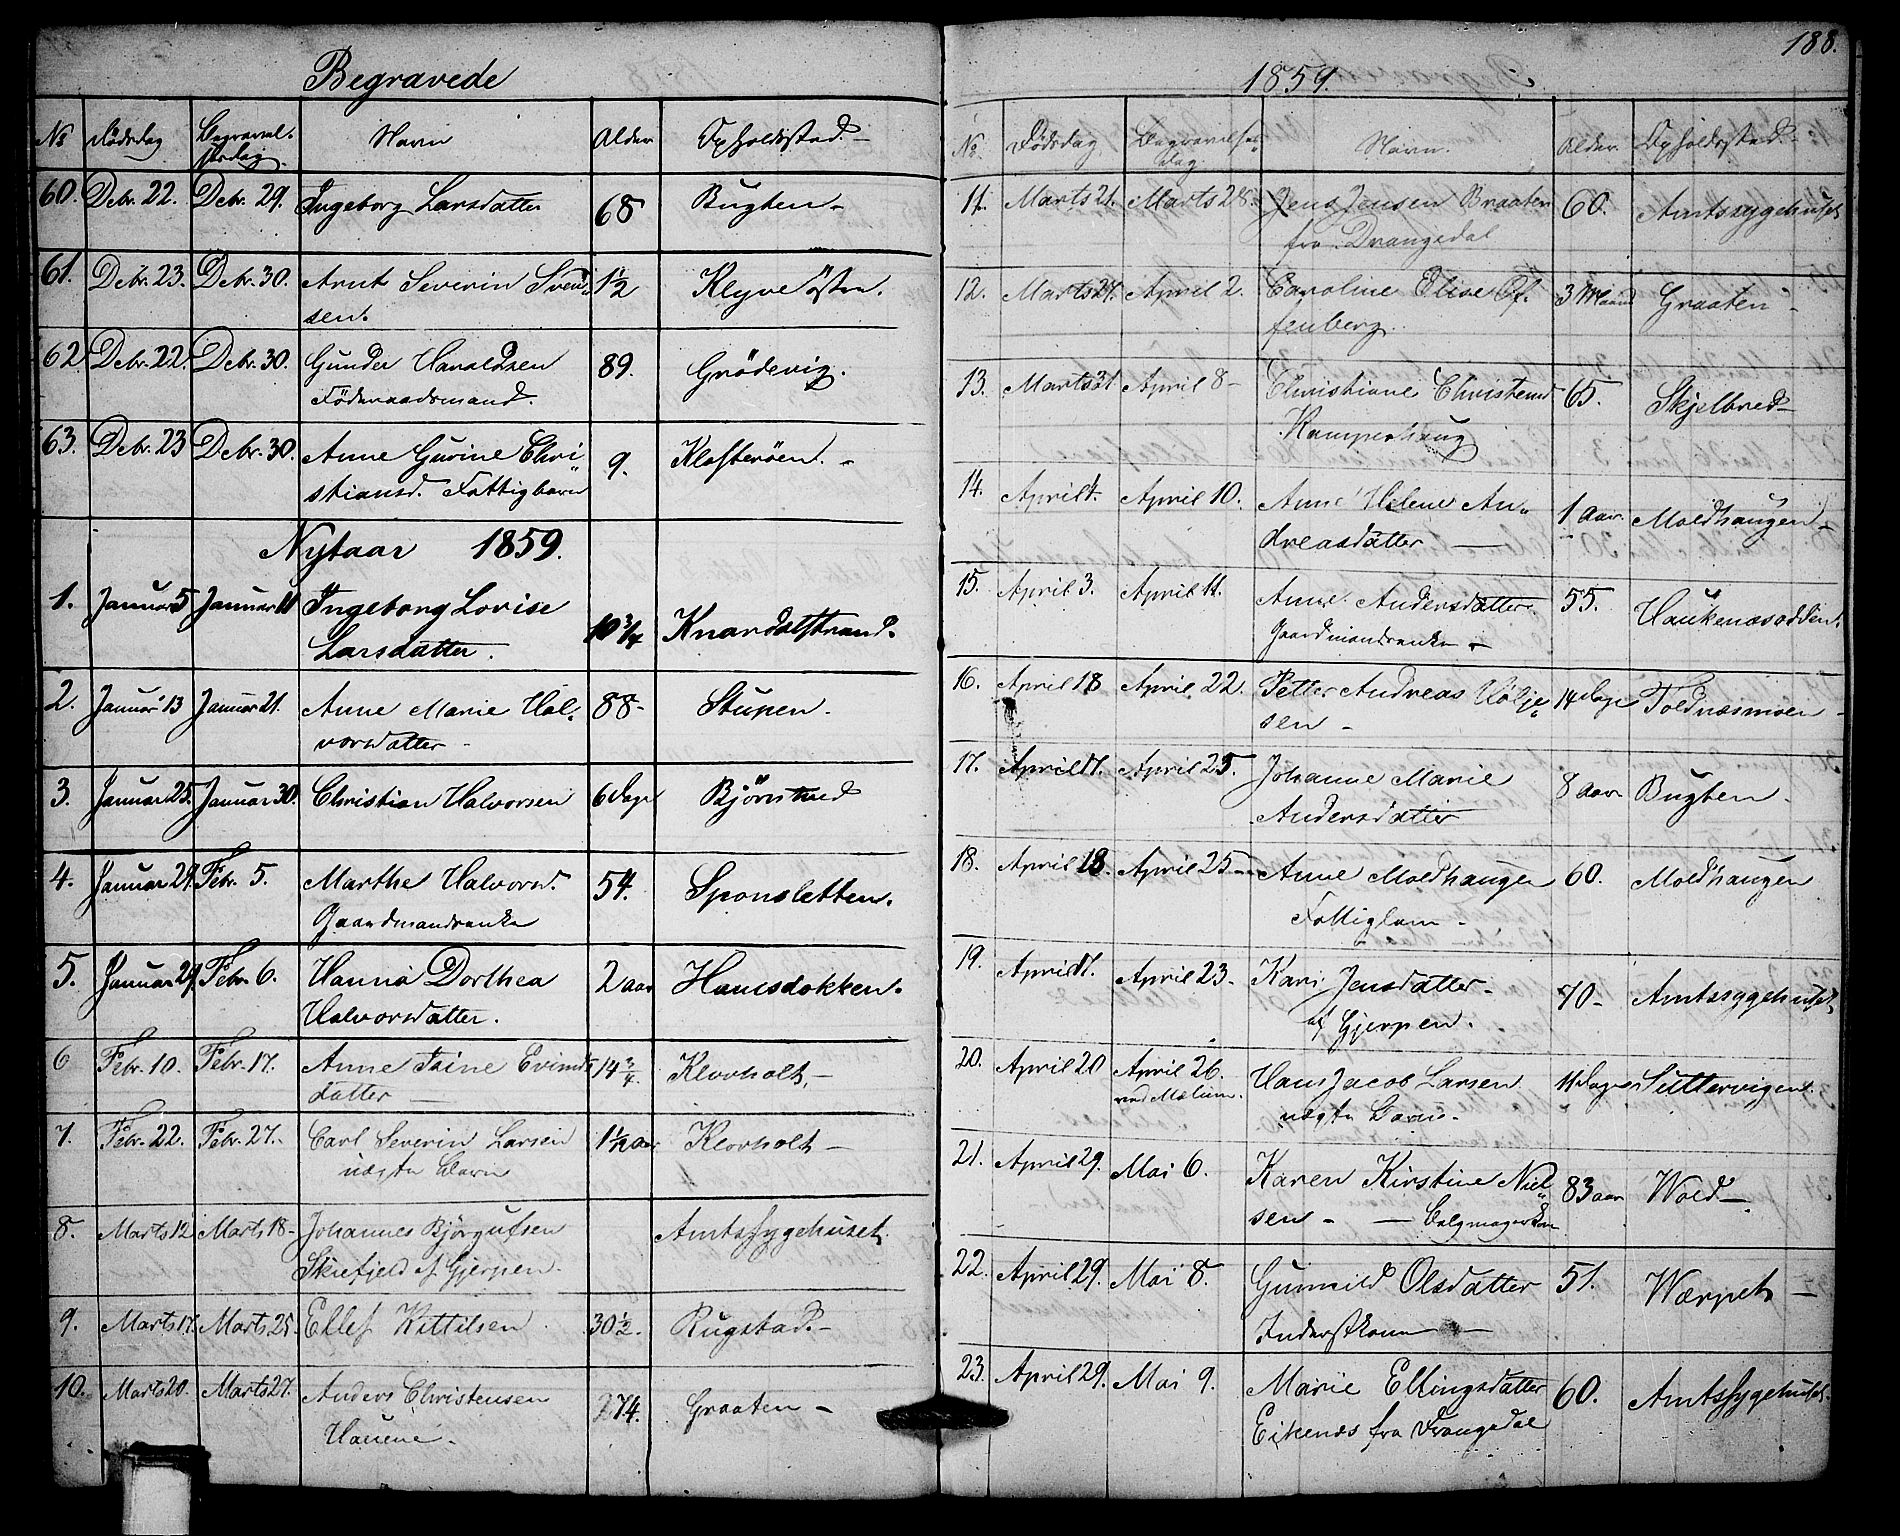 Begravede
No Dödsdag Begravel- Navn Alder Opholdsstad
sesdag
60. Debr. 22. Debr. 29. Ingeborg Larsdatter 68 Bugten
61. Debr. 23. Debr. 30. Arnt Severin Svend 1½ Klyve östre.
sen.
62 Debr. 22. Debr. 30. Gunder Haraldsen 89. Grödevig.
Föderaadsmand.
63. Debr. 23 Debr. 30. Anne Gurine Chri 9. Klosteröen.
stiansd. Fattigbarn
Nytaar 1859.
1. Januar 5 Januar 11 Ingeborg Lovise 10 3/4 Knardalstrand.
Larsdatter.
2. Januar 13 Januar 21. Anne Marie Hal- 88 Stupen.
vorsdatter
3. Januar 25. Januar 30. Christian Halvorsen 6 Dage Björnstad
4. Januar 29. Febr. 5. Marthe Halvorsd. 54. Sponsletten.
Gaardmandsenke
5. Januar 29 Febr. 6. Hanna Dorthea 2 aar Hansdokken.
Halvorsdatter.
6 Febr. 10. Febr. 17. Anne Evinds 14 3/4. Klovholt
datter
7. Febr. 22. Febr. 27. Carl Severin Larsen Klovholt
uægte Barn
8. Marts 12 Marts 18 Johannes Björgufsen Amtssygehuset
Skrefjeld af Gjerpen.
9. Marts 17. Marts 25. Ellef Kittilsen 30½. Rugstad.
10. Marts 20. Marts 27. Anders Christensen 74. Graaten
Hauene.
188.
1859.
No. Dödsdag Begravelses- Navn. Alder. Opholdsstad
dag
11. Marts 21. Marts 28. Jens Jensen Braaten 60. Amtssygehuset
fra Drangedal
12. Marts 27. April 2. Caroline Elise Of- 3 Maand Graaten
fenberg.
13. Marts 31 April 8 Christiane Christensd 65. Skjelbred
Kamperhaug
14. April 4. April 10. Anne Helene An- 1 Aar. Moldhaugen
dreasdatter
15. April 3. April 11. Anne Andersdatter. 55. Haukenæsodden.
Gaardmandsenke
16. April 18 April 22. Petter Andreas Hölje 14 Dage Toldnæsmoen
sen
17. April 17. April 25. Johanne Marie 8 Aar Bugten
Andersdatter
18. April 18. April 25 Anne Moldhaugen 60. Moldhaugen
Fattiglem
19. April 17. April 23 Kari Jensdatter 70 Amtssygehuset
af Gjerpen.
20. April 20 April 26. Hans Jacob Larsen 11 Dage
ved Mælum. uægte Barn.
21. April 29. Mai 6. Karen Kirstine Niel 83 aar Wold
sen
22. April 29. Mai 8. Gunnild Olsdatter 51. Wærpet
Inderstkone
23. April 29. Mai 9. Marie Ellingsdatter 60. Amtssygehuset
Eikenes fra Drangedal